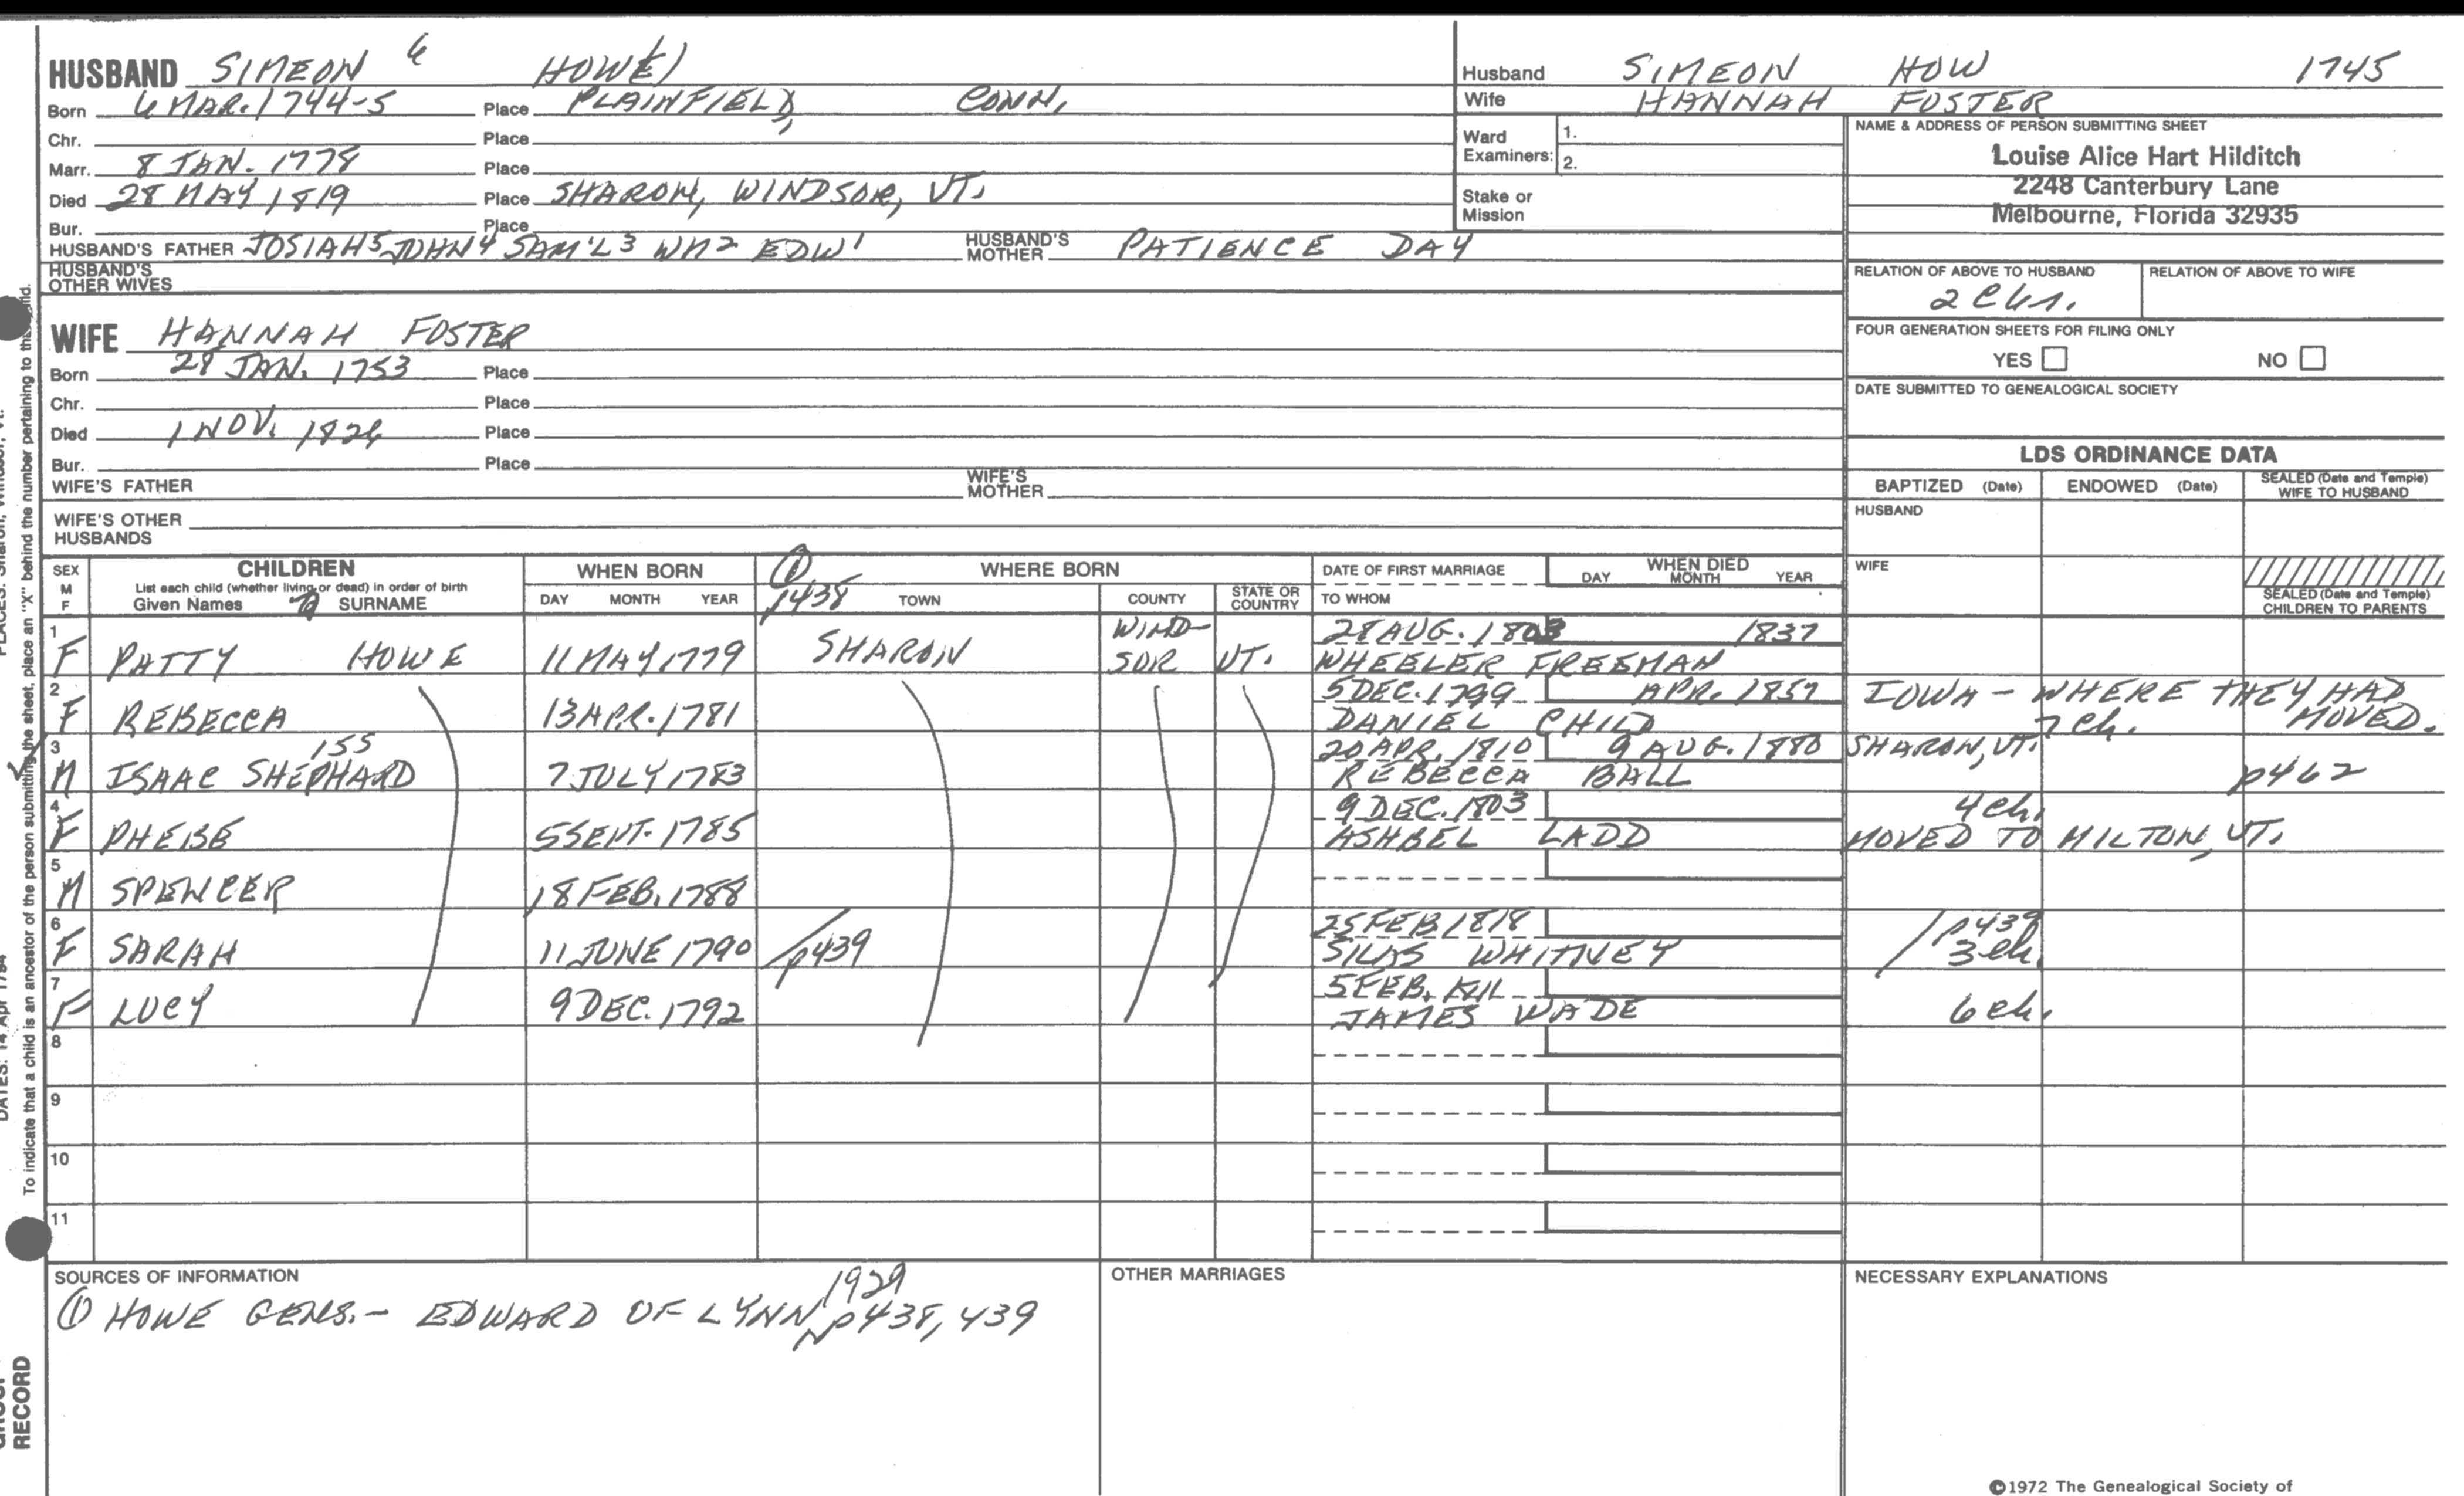 HUSBAND SIMEON 6 HOW(E)
Born 6 MAR. 1744-5 Place PLAINFIELD, CONN.
Chr. Place
Marr. 8 JAN. 1778 Place
Died 28 MAY 1819 Place SHARON, WINDSOR, VT.
Bur. Place
HUSBAND'S FATHER JOSIAH5 JOHN4 SAM'L3 WM2 EDW1 HUSBAND'S MOTHER PATIENCE DAY
HUSBAND'S OTHER WIVES
WIFE HANNAH FOSTER
Born 28 JAN. 1753 Place
Chr. Place
Died 1 NOV. 1826 Place
Bur. Place
WIFE'S FATHER WIFE'S MOTHER
WIFE'S OTHER HUSBANDS
Husband SIMEON HOW 1745
Wife HANNAH FOSTER
Ward Examiners: 1. 2.
Stake or Mission
NAME & ADDRESS OF PERSON SUBMITTING SHEET
Louise Alice Hart Hilditch
2248 Canterbury Lane
Melbourne, Florida 32935
RELATION OF ABOVE TO HUSBAND RELATION OF ABOVE TO WIFE
FOUR GENERATION SHEETS FOR FILING ONLY
YES NO
DATE SUBMITTED TO GENEALOGICAL SOCIETY
LDS ORDINANCE DATA
BAPTIZED (Date) ENDOWED (Date) SEALED (Date and Temple) WIFE TO HUSBAND
HUSBAND
WIFE
SEALED (Date and Temple) CHILDREN TO PARENTS
SEX M F
CHILDREN
List each child (whether living or dead) in order of birth
Given Names SURNAME
WHEN BORN
DAY MONTH YEAR
① p438
WHERE BORN
TOWN COUNTY STATE OR COUNTRY
DATE OF FIRST MARRIAGE
TO WHOM
WHEN DIED
DAY MONTH YEAR
1 WIND- 28 AUG. 1803 1837
F PATTY HOWE 11 MAY 1779 SHARON SOR VT. WHEELER FREEMAN
2 5 DEC. 1799 APR. 1857 IOWA - WHERE THEY HAD
F REBECCA 13 APR. 1781 DANIEL CHILD 7 ch. MOVED.
3 155 20 APR. 1810 9 AUG. 1880 SHARON, VT.
M ISAAC SHEPHARD 7 JULY 1783 REBECCA BALL p462
4 9 DEC. 1803 4 ch.
F PHEBE 5 SEPT. 1785 ASHBEL LADD MOVED TO MILTON, VT.
5
M SPENCER 18 FEB. 1788
6 25 FEB 1818 /p439
F SARAH 11 JUNE 1790 /p439 SILAS WHITNEY 3 ch.
7 5 FEB.
F LUCY 9 DEC. 1792 JAMES WADE 6 ch.
8
9
10
11
SOURCES OF INFORMATION
1929
① HOWE GENS. - EDWARD OF LYNN, p438, 439
OTHER MARRIAGES
NECESSARY EXPLANATIONS
©1972 The Genealogical Society of
To indicate that a child is an ancestor of the person submitting the sheet, place an "X" behind the number pertaining to
RECORD